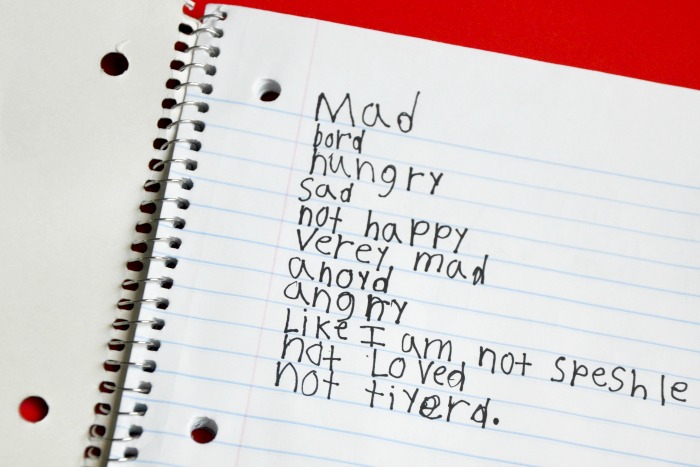 Mad
bord
hungry
sad
not happy
verey mad
anoyd
angrry
Like I am not speshle
not Loved
not tiyerd.